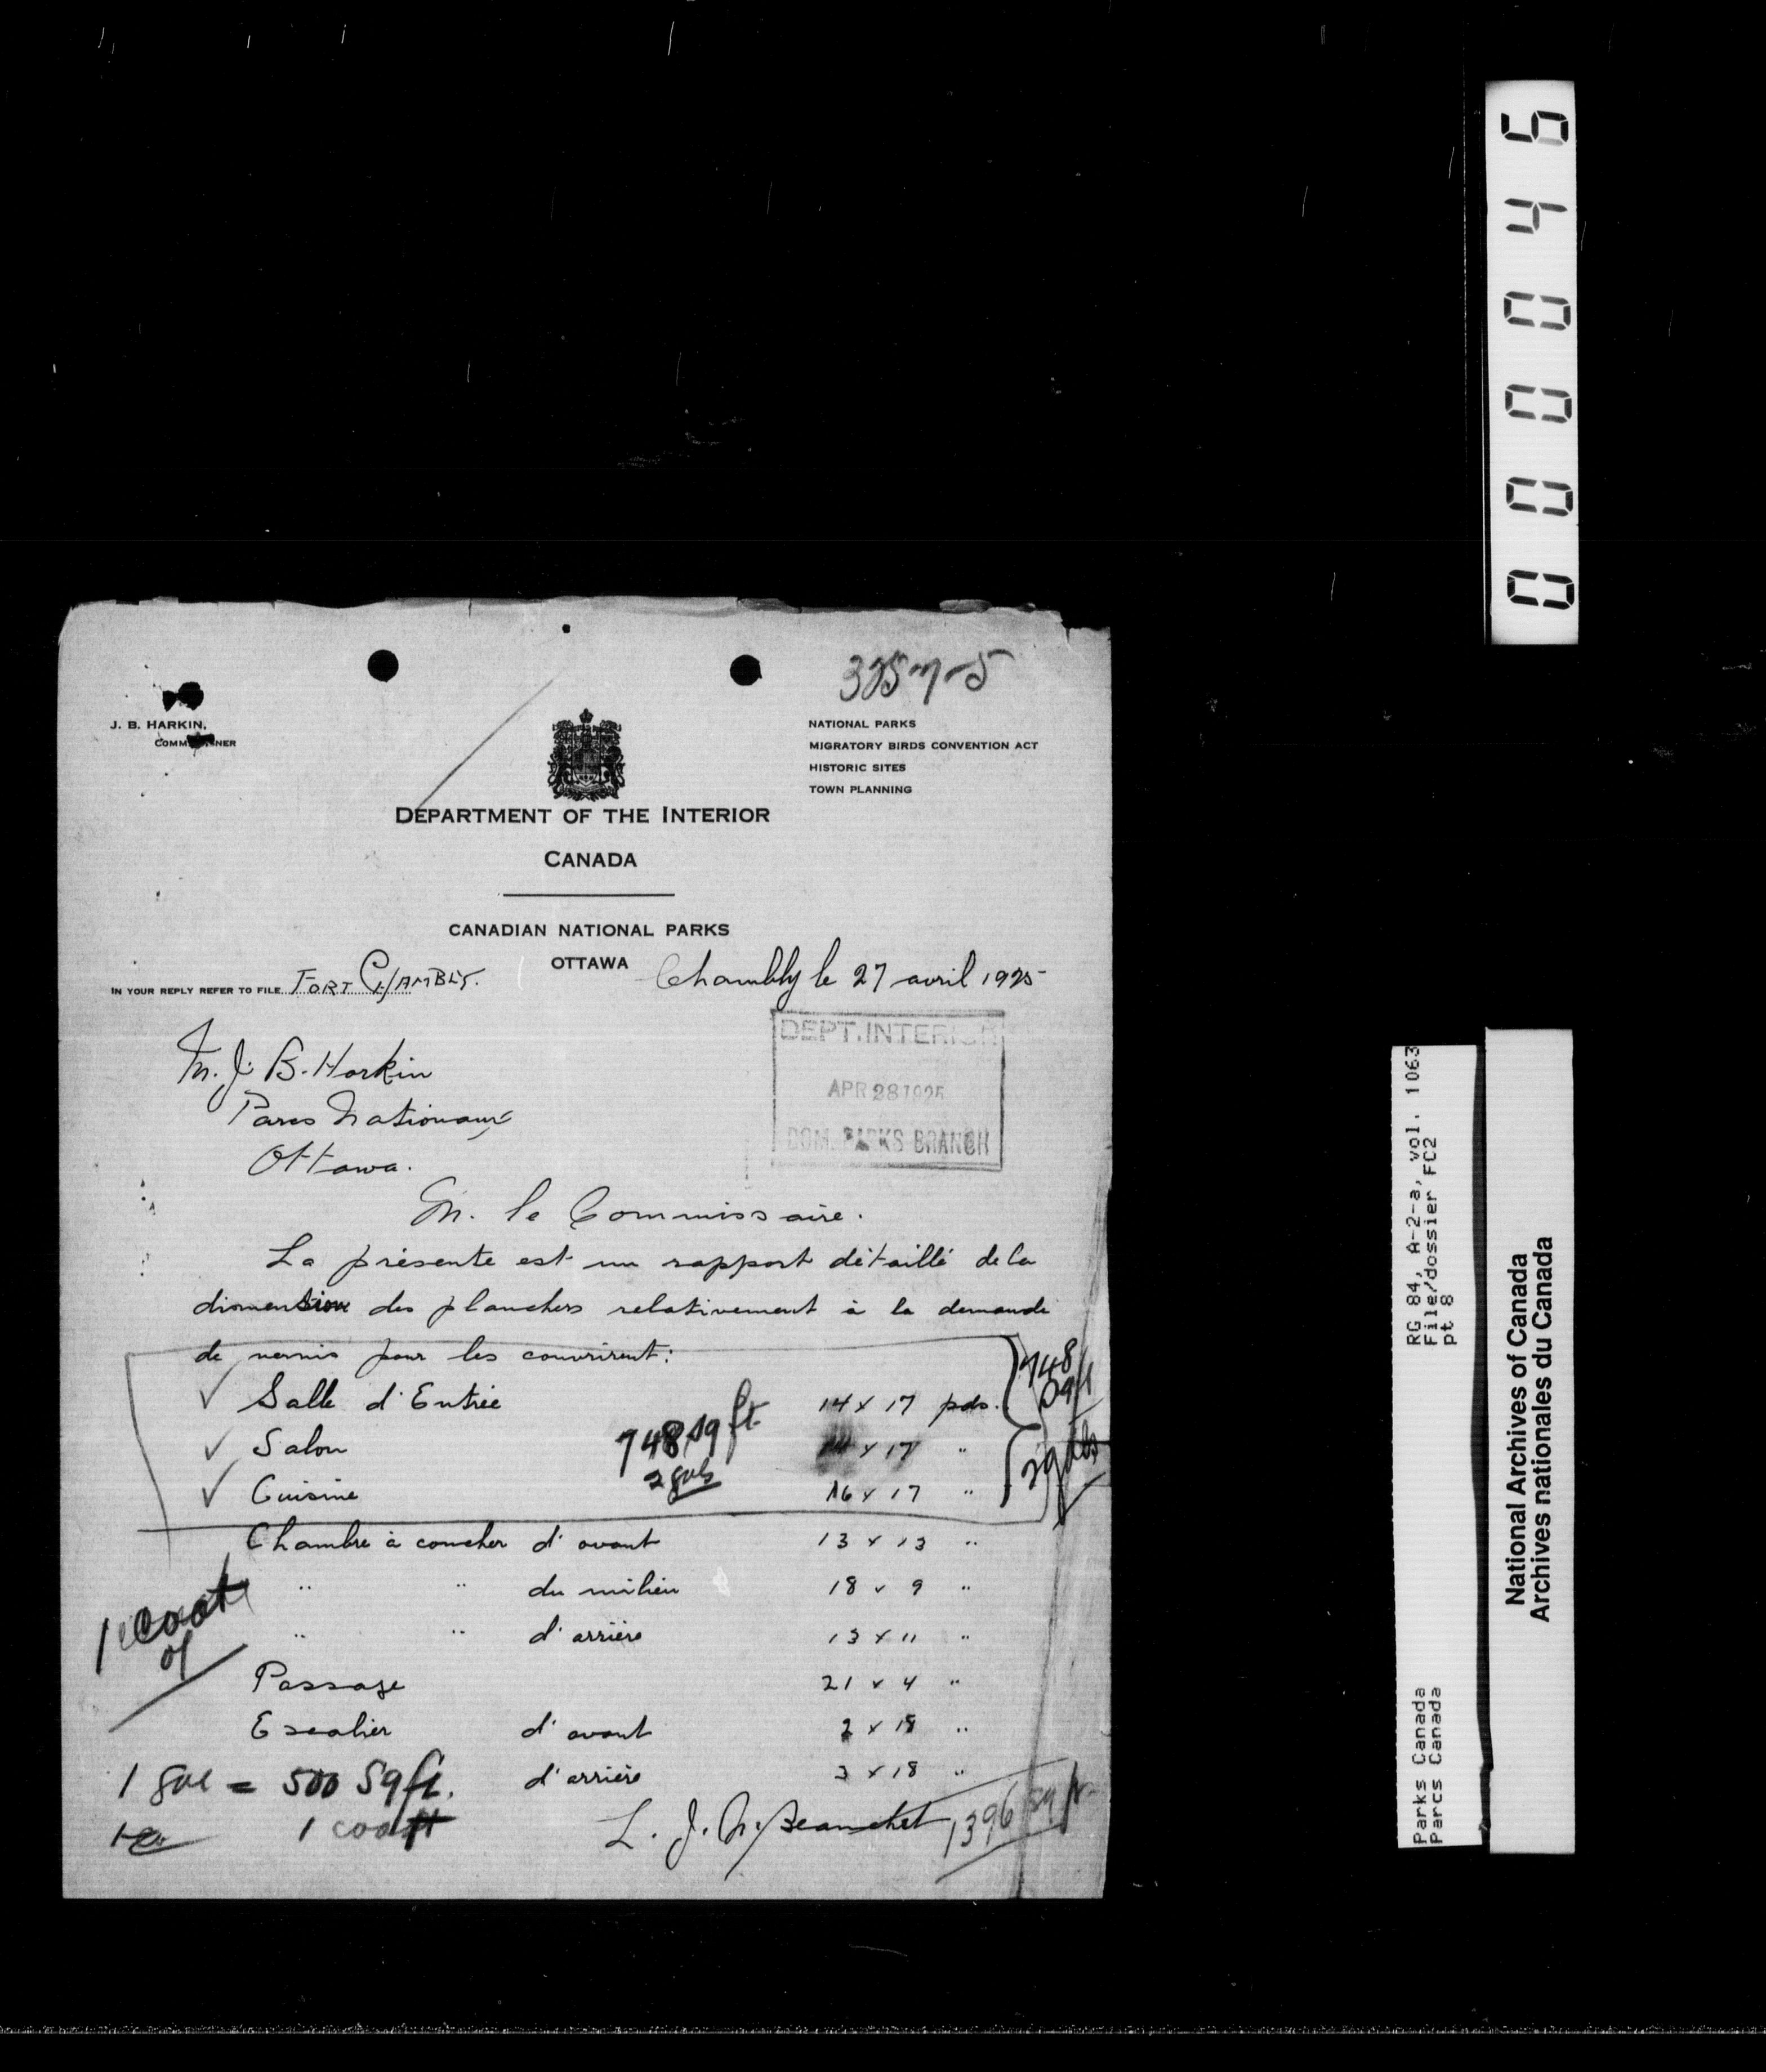 325-7-5
J. B. HARKIN,
COMMISSIONER
NATIONAL PARKS
MIGRATORY BIRDS CONVENTION ACT
HISTORIC SITES
TOWN PLANNING
DEPARTMENT OF THE INTERIOR
CANADA
CANADIAN NATIONAL PARKS
OTTAWA
IN YOUR REPLY REFER TO FILE FORT CHAMBLY.
Chambly le 27 avril 1925
DEPT. INTERIOR
APR 28 1925
DOM. PARKS BRANCH
M. J. B. Harkin
Parcs Nationaux
Ottawa.
M. le Commissaire.
La présente est un rapport détaillé de la
dimension des planchers relativement à la demande
de vernis pour les couvrirent:
✓ Salle d'Entrée 14 x 17 pds.
✓ Salon 14 x 17 "
✓ Cuisine 16 x 17 "
748 sq ft
2 gals
748
sq ft
2 gals
Chambre à coucher d'avant 13 x 13 "
" " du milieu 18 x 9 "
" " d'arrière 13 x 11 "
Passage 21 x 4 "
Escalier d'avant 2 x 18 "
d'arrière 3 x 18 "
1 coat
of
1 gal = 500 sq ft.
1 coat
L. J. N. Blanchet
1396 sq ft
000046
RG 84, A-2-a, vol. 1063
File/dossier FC2
pt 8
Parks Canada
Parcs Canada
National Archives of Canada
Archives nationales du Canada